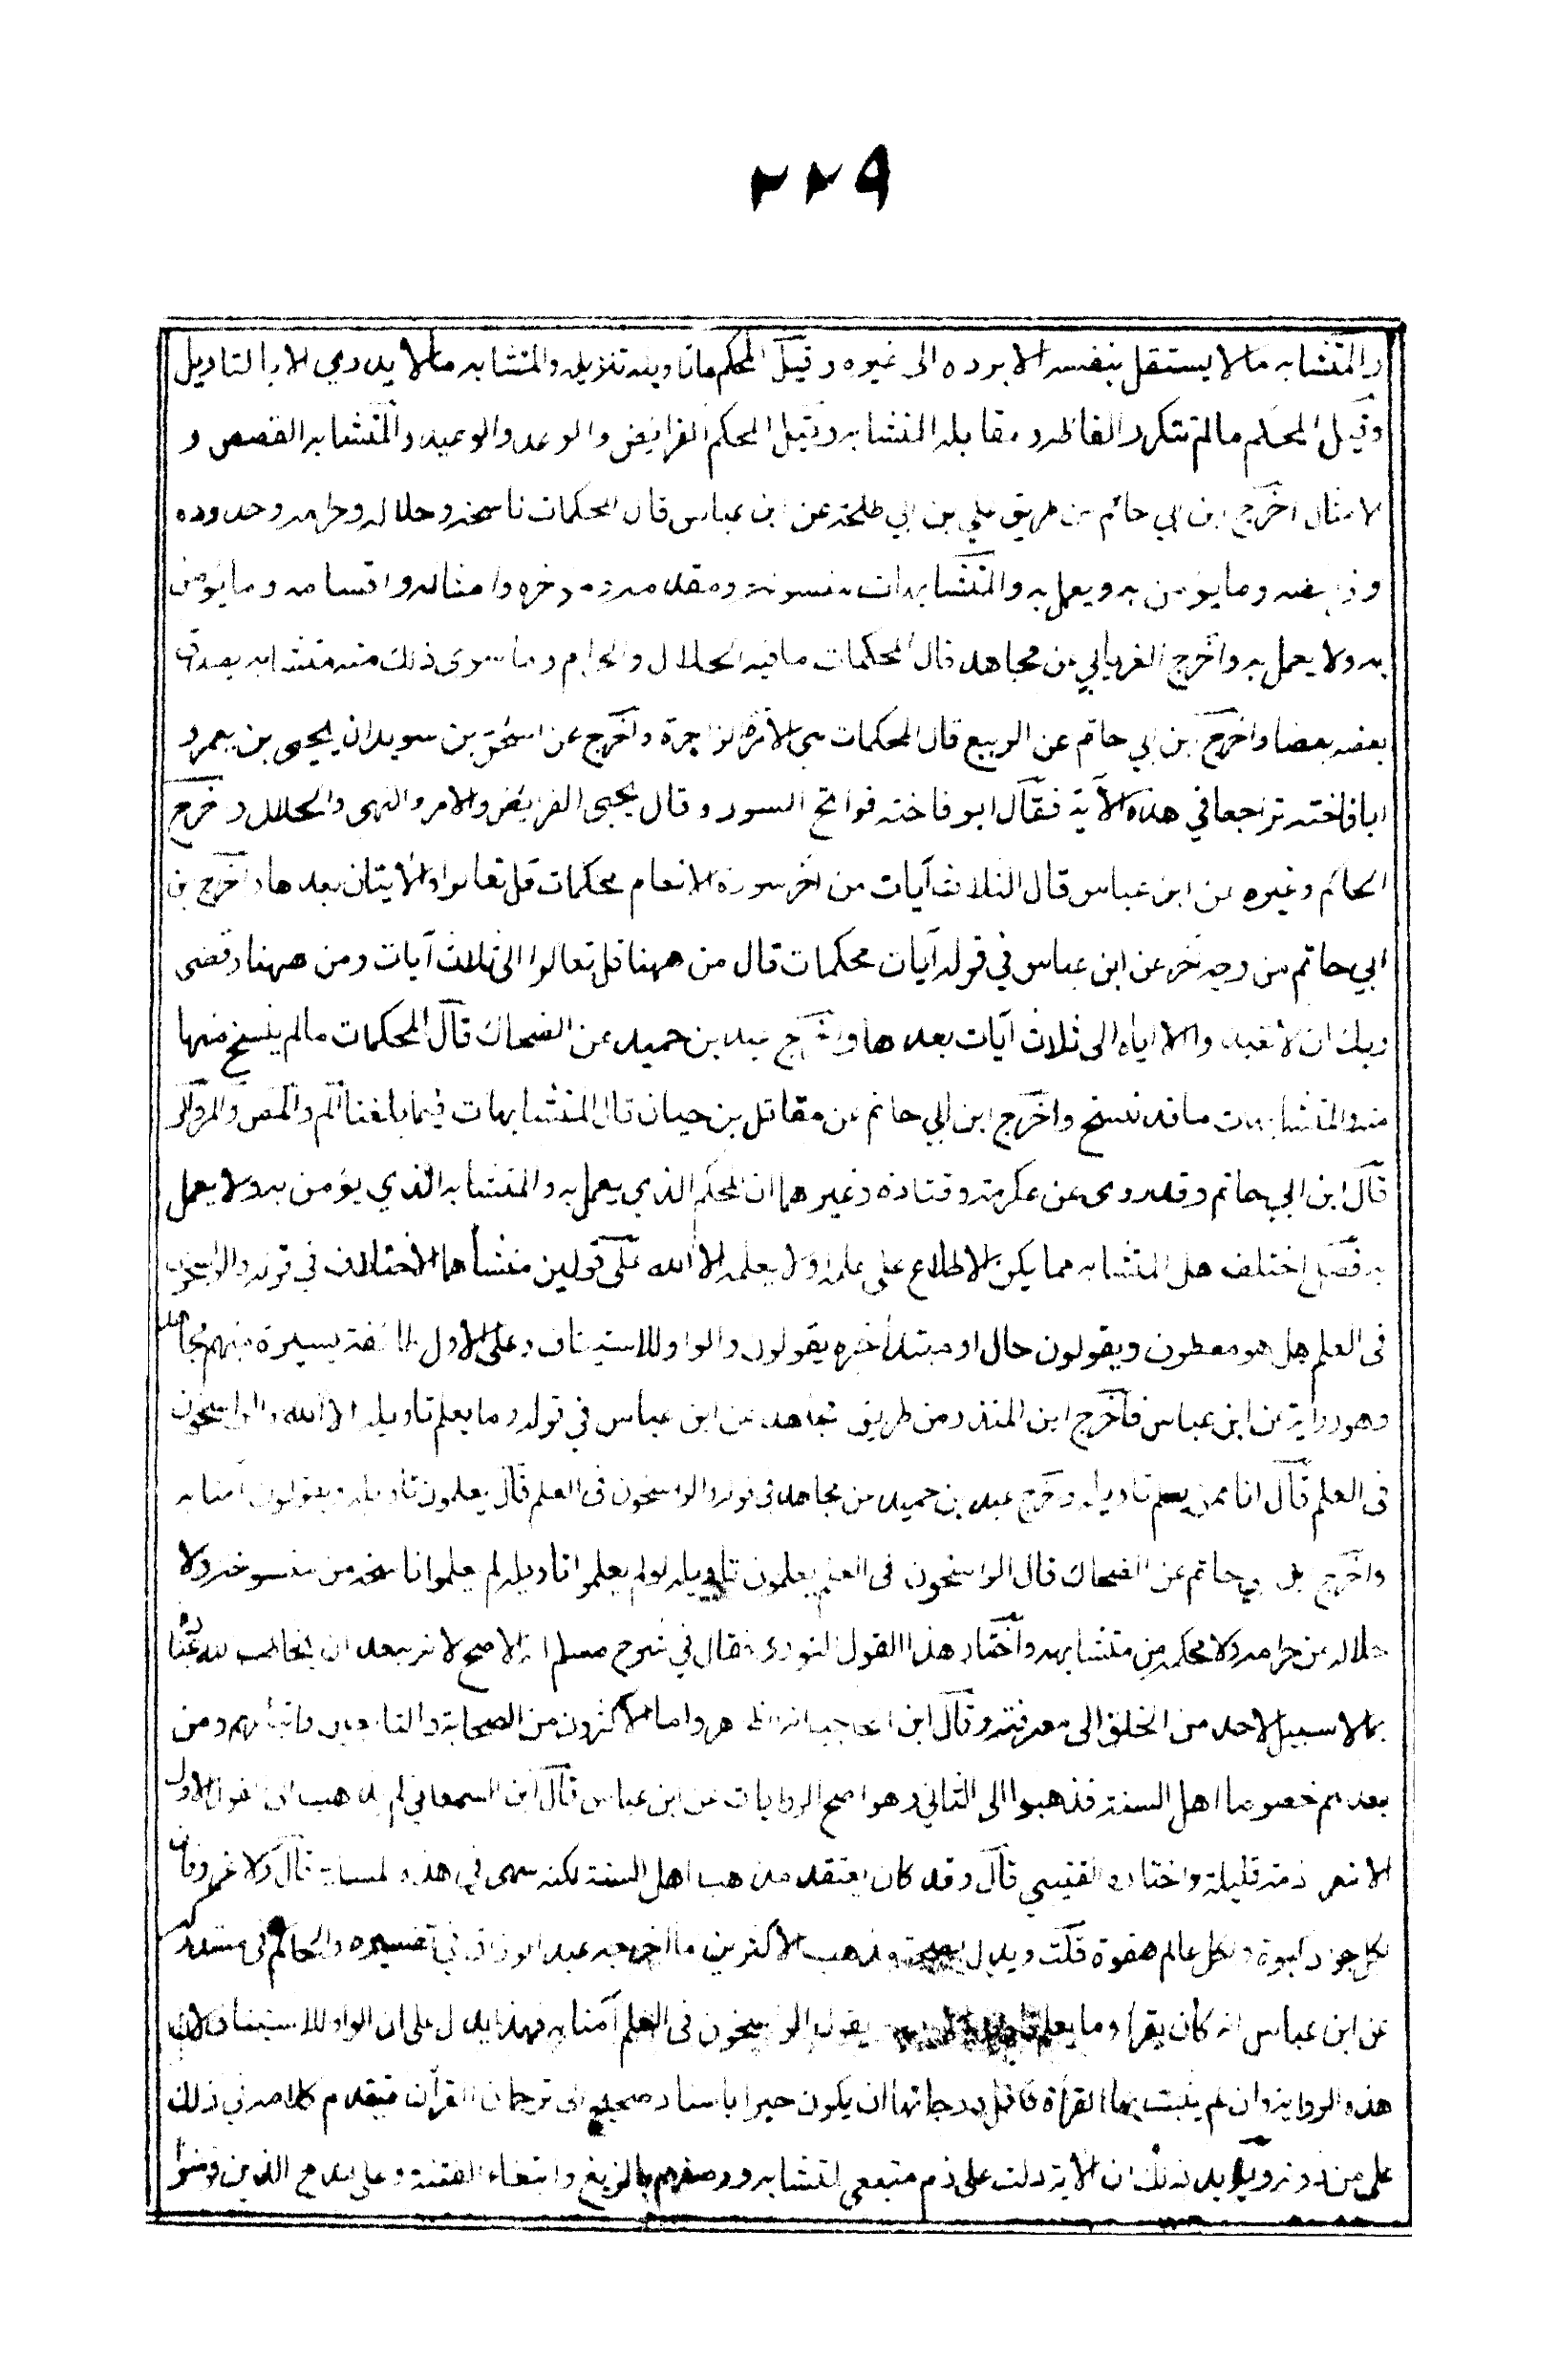 ٢٢٩
والمتشابه ما لا يستقل بنفسه الا برده الى غيره وقيل المحكم ما تاويله تنزيله والمتشابه ما لا يدري الا بالتاويل
وقيل المحكم ما لم تتكرر الفاظه ومقابله المتشابه وقيل المحكم الفرايض والوعد والوعيد والمتشابه القصص و
الامثال اخرج ابن ابي حاتم من طريق علي بن ابي طلحة عن ابن عباس قال المحكمات ناسخه وحلاله وحرامه وحدوده
وفرايضه وما يؤمن به ويعمل به والمتشابهات منسوخه ومقدمه ومؤخره وامثاله واقسامه وما يؤمن
به ولا يعمل به واخرج الفريابي عن مجاهد قال المحكمات ما فيه الحلال والحرام وما سوى ذلك منه متشابه يصدق
بعضه بعضا واخرج ابن ابي حاتم عن الربيع قال المحكمات هي الآمرة الزاجرة واخرج عن اسحق بن سويد ان يحيى بن يعمر و
ابا فاختة تراجعا في هذه الآية فقال ابو فاختة فواتح السور وقال يحيى الفرايض والامر والنهى والحلال واخرج
الحاكم وغيره عن ابن عباس قال الثلاث آيات من آخر سورة الانعام محكمات قل تعالوا والآيتان بعدها واخرج بن
ابي حاتم من وجه آخر عن ابن عباس في قوله آيات محكمات قال من ههنا قل تعالوا الى ثلاث آيات ومن ههنا وقضى
ربك ان لا تعبدوا الا اياه الى ثلاث آيات بعدها واخرج عبد بن حميد عن الضحاك قال المحكمات ما لم ينسخ منها
منه والمتشابهات ما قد نسخ واخرج ابن ابي حاتم عن مقاتل بن حيان قال المتشابهات فيما بلغنا الم والمص والمر والر
قال ابن ابي حاتم وقد روى عن عكرمة وقتادة وغيرهما ان المحكم الذي يعمل به والمتشابه الذي يؤمن به ولا يعمل
به فصل اختلف هل المتشابه مما يمكن الاطلاع على علمه او لا يعلمه الا الله على قولين منشأهما الاختلاف في قوله والراسخون
فى العلم هل هو معطوف ويقولون حال او مبتدأ خبره يقولون والواو للاستيناف وعلى الاول طائفة يسيرة منهم مجاهد
وهو رواية عن ابن عباس فاخرج ابن المنذر من طريق مجاهد عن ابن عباس في قوله وما يعلم تاويله الا الله والراسخون
فى العلم قال انا ممن يعلم تاويله واخرج عبد بن حميد عن مجاهد في قوله والراسخون فى العلم قال يعلمون تأويله ويقولون آمنا به
واخرج ابن ابي حاتم عن الضحاك قال الراسخون فى العلم يعلمون تاويله لو لم يعلموا تاويله لم يعلموا ناسخه من منسوخه ولا
حلاله من حرامه ولا محكمه من متشابهه واختار هذا القول النووى فقال في شرح مسلم انه الاصح لانه يبعد ان يخاطب الله عباده
بما لا سبيل لاحد من الخلق الى معرفته وقال ابن الحاجب انه الظاهر واما الاكثرون من الصحابة والتابعين واتباعهم ومن
بعدهم خصوصا اهل السنة فذهبوا الى الثاني وهو اصح الروايات عن ابن عباس قال ابن السمعاني لم يذهب الى القول الاول
الا شرذمة قليلة واختاره القتيبي قال وقد كان يعتقد مذهب اهل السنة لكنه سهى في هذه المسالة قال ولا غرو فان
لكل جواد كبوة ولكل عالم هفوة قلت ويدل لصحة مذهب الاكثرين ما اخرجه عبد الرزاق في تفسيره والحاكم فى مستدركه
عن ابن عباس انه كان يقرأ وما يعلم تاويله الا الله ويقول الراسخون فى العلم آمنا به فهذا يدل على ان الواو للاستيناف لان
هذه الرواية وان لم يثبت بها القرأة فاقل درجاتها ان يكون خبرا باسناد صحيح الى ترجمان القرآن فيقدم كلامه في ذلك
على من دونه ويؤيد ذلك ان الآية دلت على ذم متبعي المتشابه ووصفهم بالزيغ وابتغاء الفتنة وعلى مدح الذين فوضوا